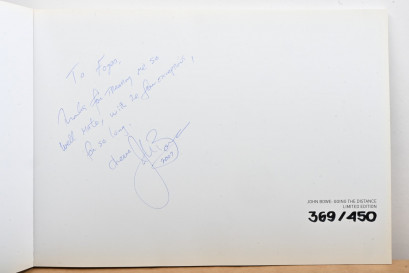 To Fogas.
Thanks for treating me so
well mate, with so
for so long.
Cheers
2007
JOHN BOWE: GOING THE DISTANCE
LIMITED EDITION
369/450